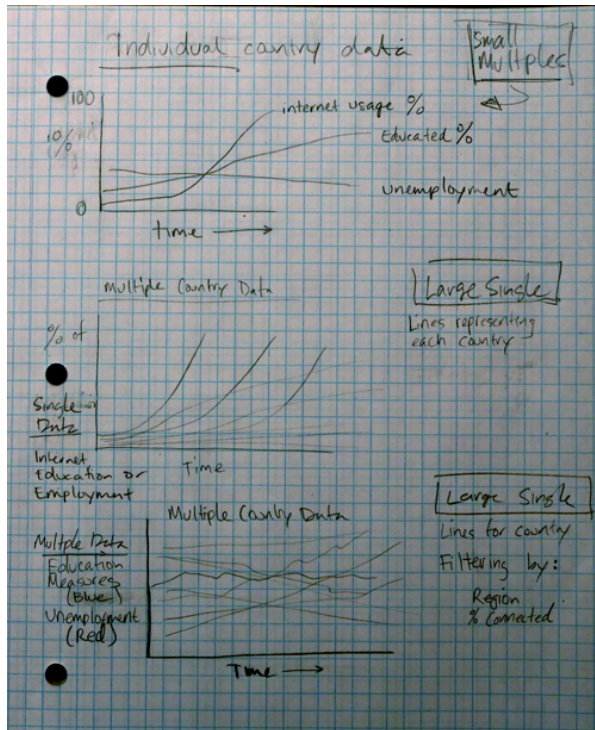 Individual country data
Small
Multiples
100
%
0
internet usage %
Educated %
unemployment
time
Multiple Country Data
Large Single
Lines representing
each country
% of
Single
Data
Internet
Education or
Employment
Time
Multiple Country Data
Large Single
Lines for country
Filtering by:
Region
% Connected
Multple Data
Education
Measures
(Blue)
Unemployment
(Red)
Time